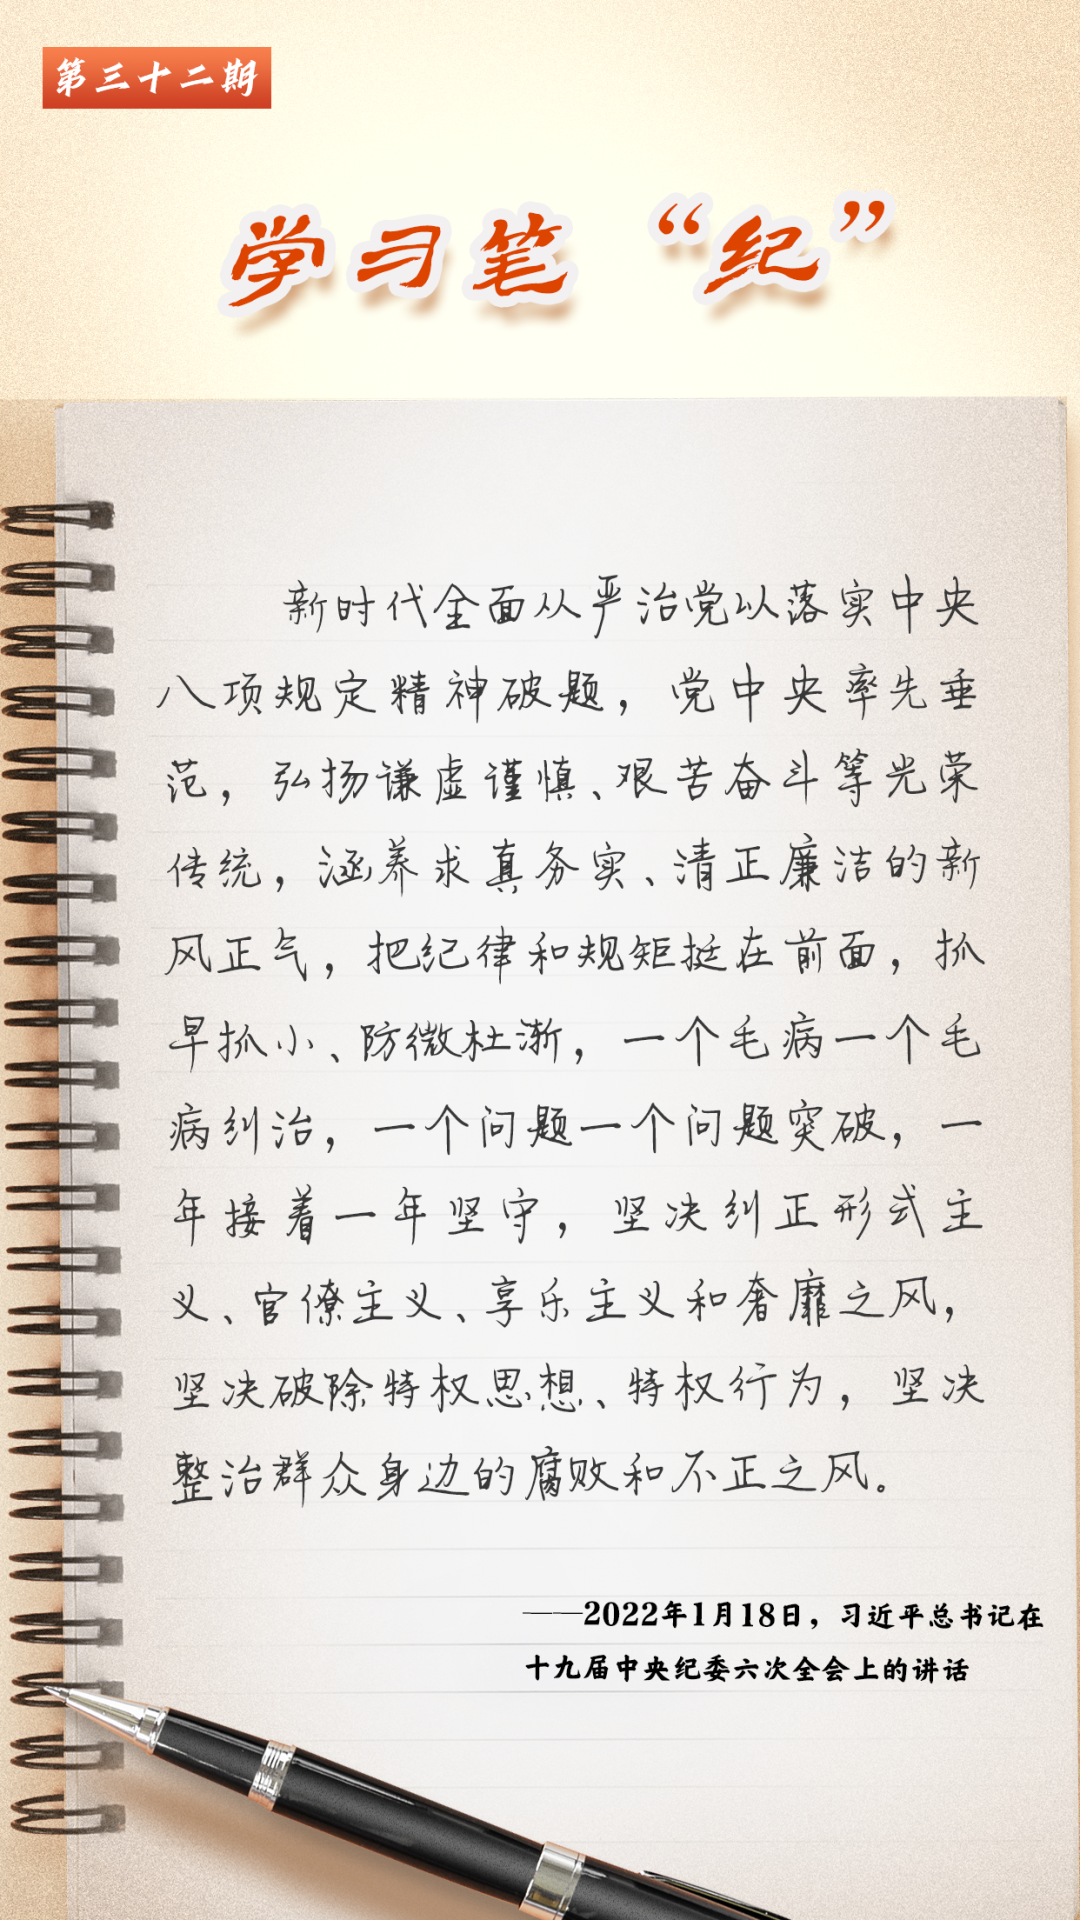 第三十二期
学习笔“纪”
新时代全面从严治党以落实中央
八项规定精神破题，党中央率先垂
范，弘扬谦虚谨慎、艰苦奋斗等光荣
传统，涵养求真务实、清正廉洁的新
风正气，把纪律和规矩挺在前面，抓
早抓小、防微杜渐，一个毛病一个毛
病纠治，一个问题一个问题突破，一
年接着一年坚守，坚决纠正形式主
义、官僚主义、享乐主义和奢靡之风，
坚决破除特权思想、特权行为，坚决
整治群众身边的腐败和不正之风。
——2022年1月18日，习近平总书记在
十九届中央纪委六次全会上的讲话